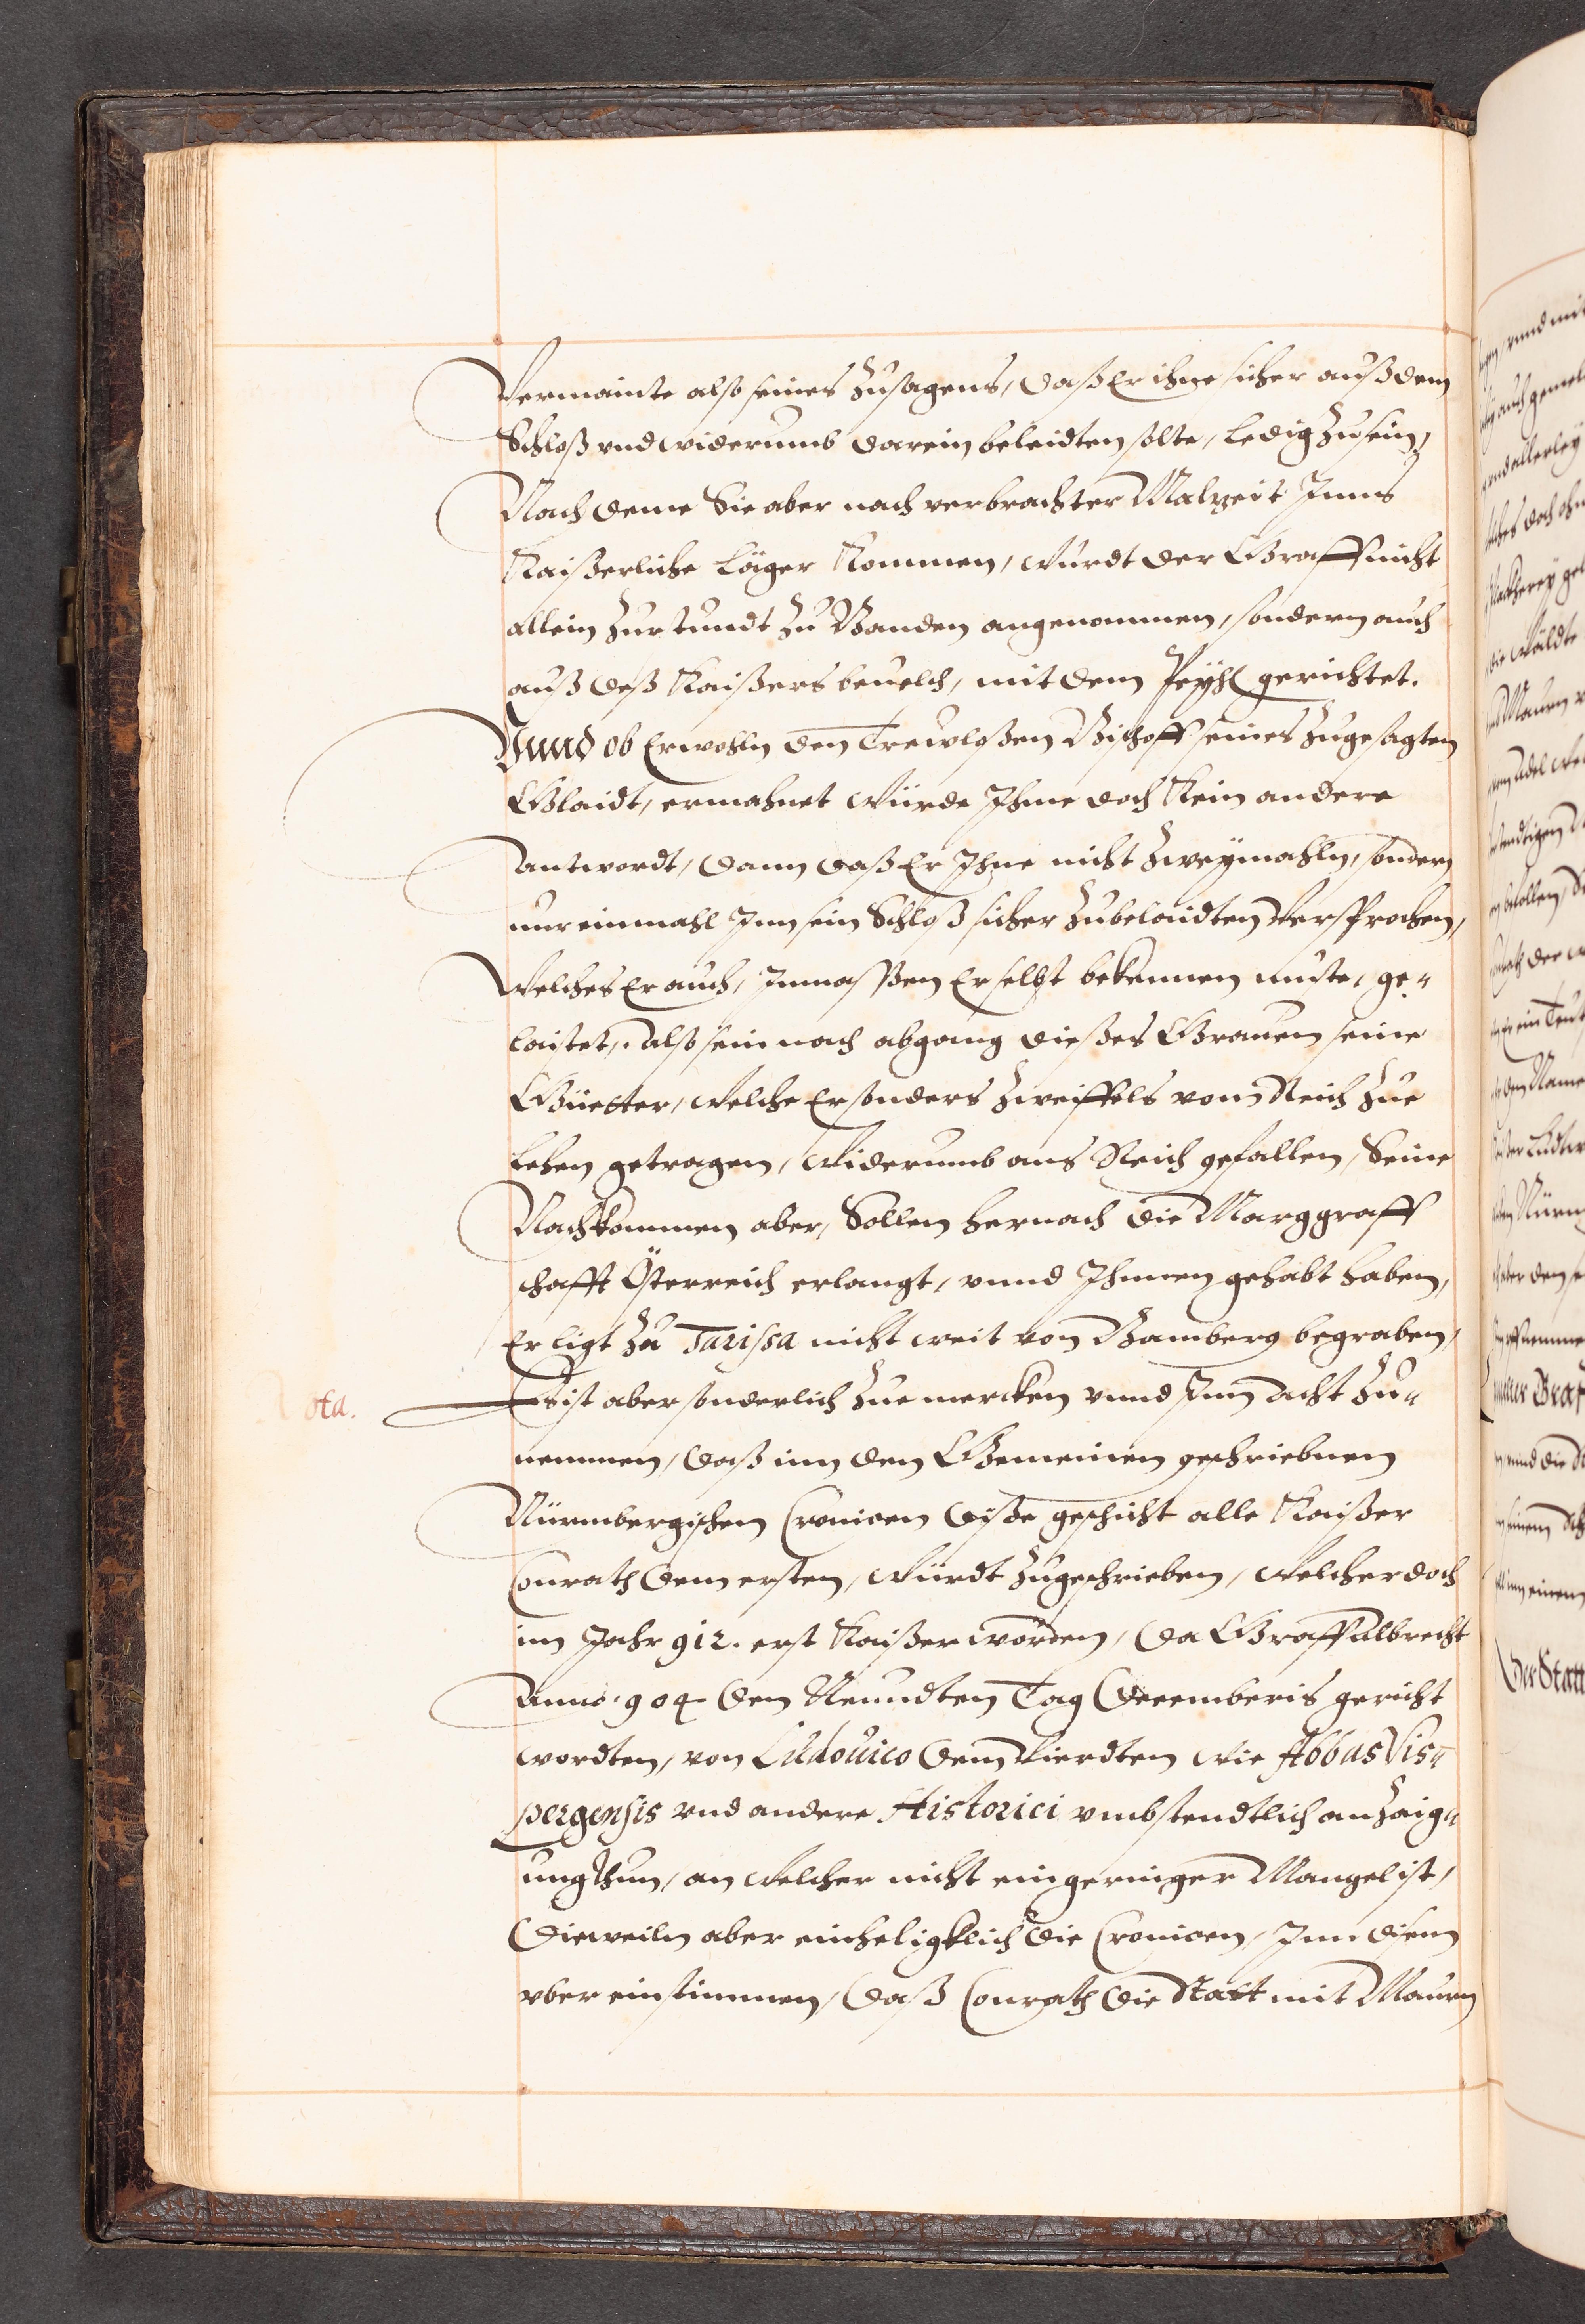 Vermainte also seines zusagens, daß Er ihne sicher auß dem
Schloß vnd widerumb darein beleidten solte, ledig zu sein,
Nach deme Sie aber nach verbrachter Malzeit Inns
Kaißerliche Läger kommen, wurdt der Graff nicht
allein zur stundt zu Banden angenommen, sondern auch
auß deß Kaißers beuelch, mit dem Peyhl gerichtet.
Vnnd ob Er wohln den Trewloßen Bischoff seines zugesagten
Glaidt, ermahnet würde Ihme doch kein andere
Antwordt, dann daß Er Ihne nicht zweymahln, sondern
nur einmahl Inn sein Schloß sicher zubelaidten versprochen,
Welches Er auch, Inmassen Er selbst bekennen muste, ge-
laistet, Also sein nach abgang dießes Grauen seine
Güetter, welche Er sonders zweiffels vom Reich zue
Lehen getragen, widerumb ans Reich gefallen, Seine
Nachkommen aber, Sollen hernach die Marggraff
chafft Österreich erlangt, vnnd Ihnnen gehabt haben,
Er ligt zu Tarissa nicht weit von Bamberg begraben,
Nota.
Es ist aber sonderlich zue mercken vnnd Inn Acht zu-
nemmen, daß inn den Gemeinen geschriebnen
Nürmbergischen Cronicen diße geschicht alle Kaißer
Conrath dem ersten, würdt zugeschrieben, welcher doch
im Jahr 912. erst Kaißer worden, da Graff Albrecht
Anno. 904 den Neundten Tag Decemberis gericht
wordten, von Ludouico dem Vierdten wie Abbas Vis-
pergensis vnd andere Historici vmbstendtlich anzaig-
ung thun, an welcher nicht ein geringer Mangel ist,
Dieweiln aber einheligklich die Cronicen, Inn disem
vberein stimmen, daß Conrath die Statt mit Maurn